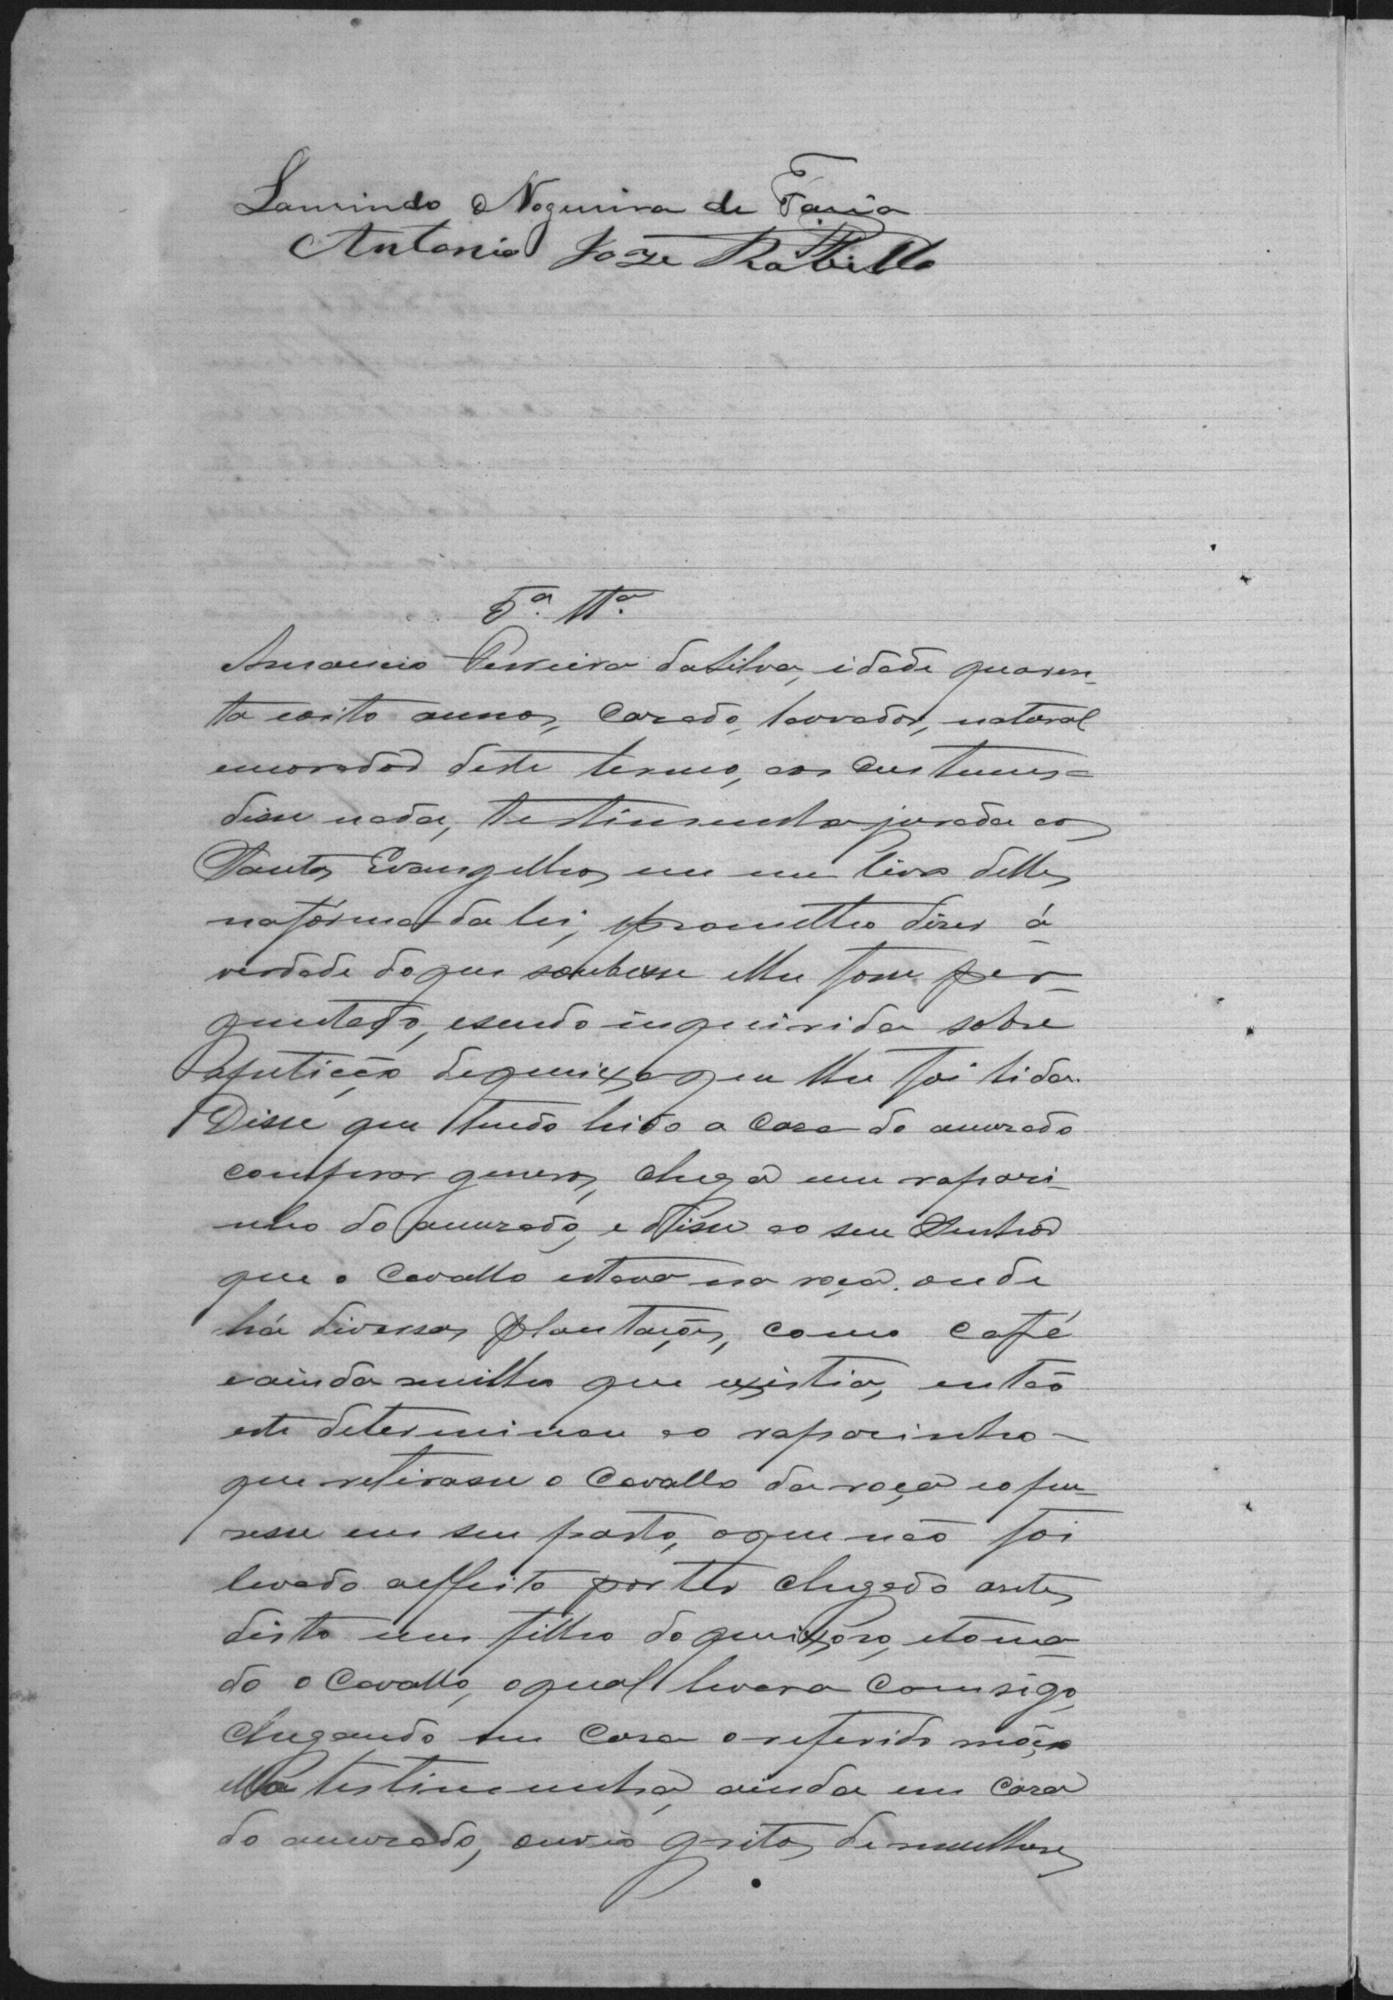 Laurindo Nogueira de Faria
Antonio Joze Rabello
5ª. Ttª.
Amancio Pereira da Silva, idade quaren-
ta eoito annos, Casado, lavrador, natural
emorador deste termo, aos Custumes=
disse nada, testimunha jurada aos
Santos Evangelhos em um livro delles
nafórma da lei, eprometteo diser á
verdade do que soubesse elhe fosse per-
guntado, esendo inquirida sobre
apetição dequeixa que lhe foi lida.
Disse que tendo hido a casa do accusado
comprar generos, chegá um rapasi-
nho do accusado, e disse ao seu Senhor
que o Cavallo estava na roça. onde
há diversas plantações, como café
eainda milho que existia, então
este determinou ao rapasinho-
que retirasse o Cavallo da roça eopu-
sesse em seu pasto, oque não foi
levado aeffeito por ter chegado antes
disto um filho do queixoso, etoma-
do o Cavallo, oqual levara Comsigo,
Chegando em Casa oreferido môço
ella testimunha, ainda em Casa
do accusado, ouvio gritos de mulheres